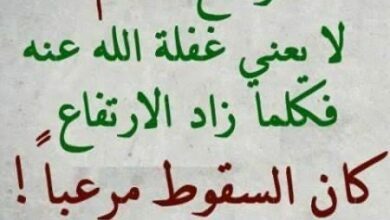 لا يعني غفلة الله عنه
فكلما زاد الارتفاع
كان السقوط مرعباً !